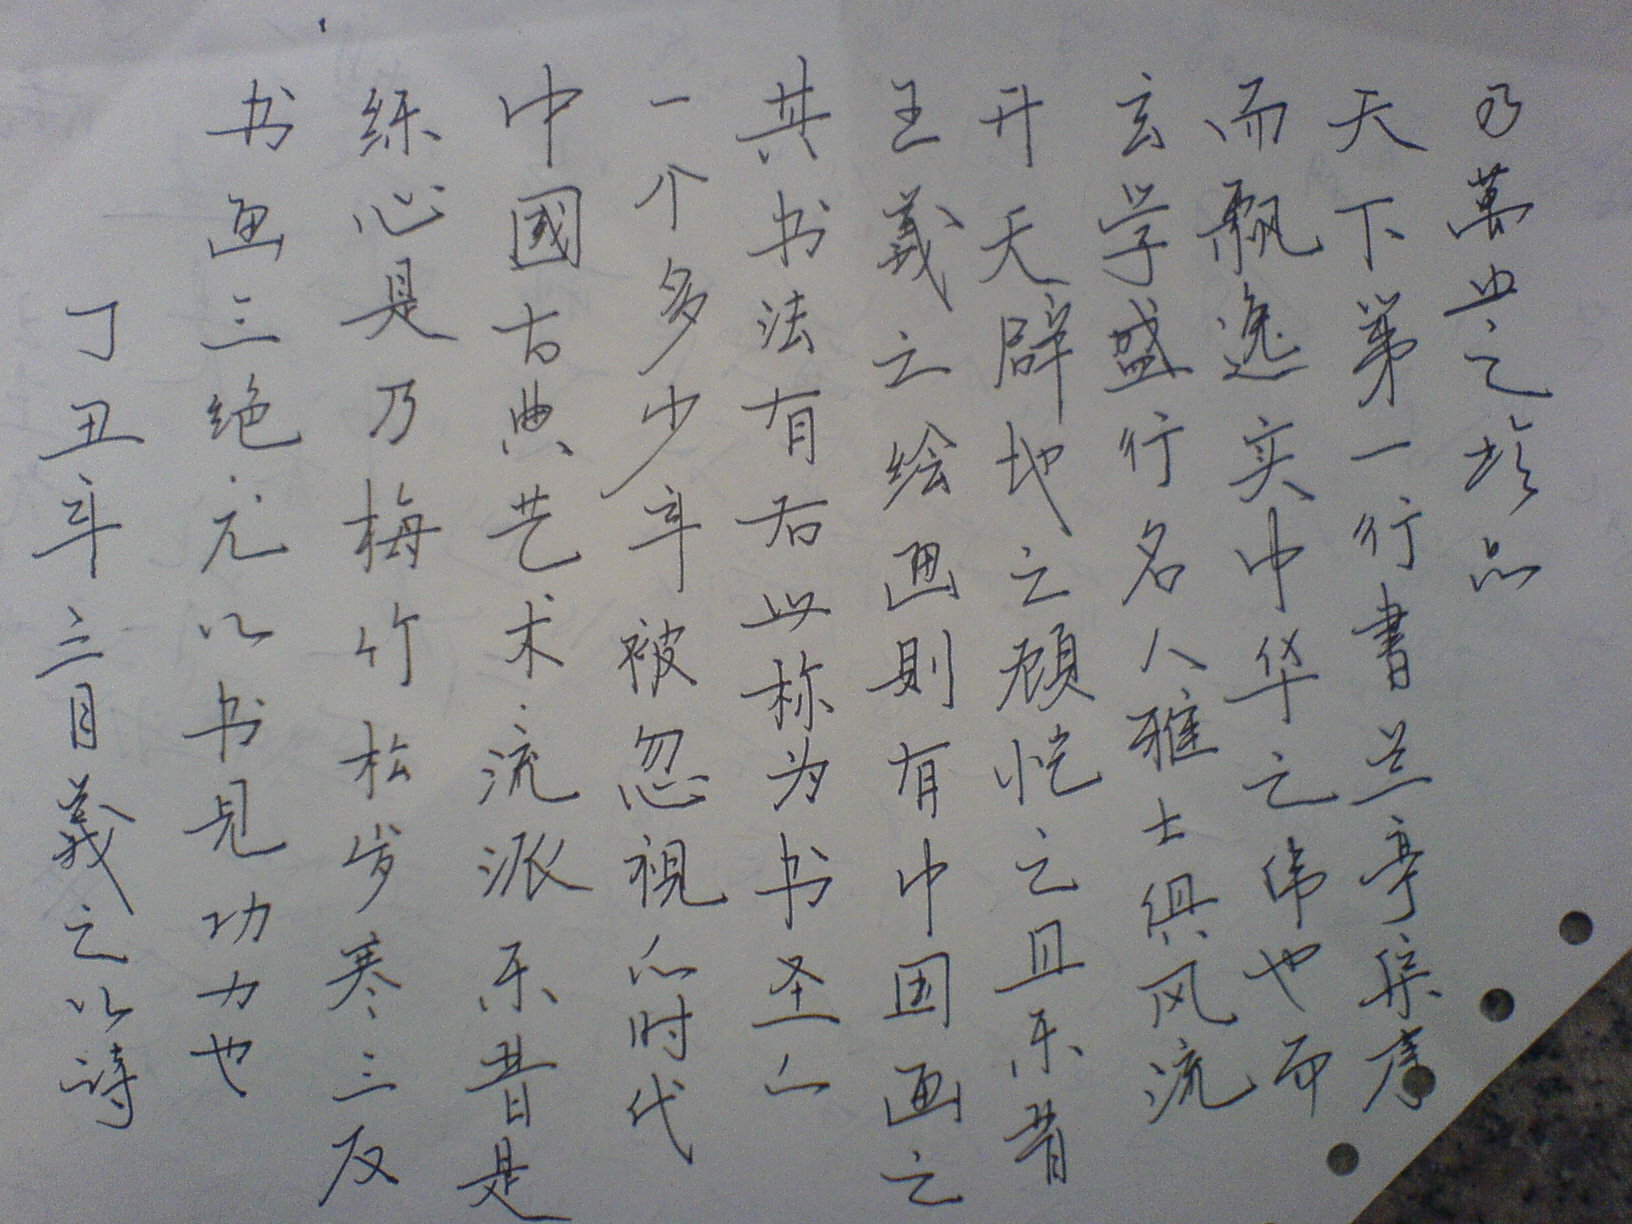 乃萬世之珍品
天下第一行書兰亭集序
而飘逸实中华之伟也而
玄学盛行名人雅士俱风流
开天辟地之顾恺之且乐昔
王羲之绘画则有中国画之
其书法有右此称为书圣人
一个多少年被忽視的时代
中國古典艺术流派乐昔是
练心是乃梅竹松岁寒三友
书画三绝尤以书見功力也
丁丑年三月義之以诗